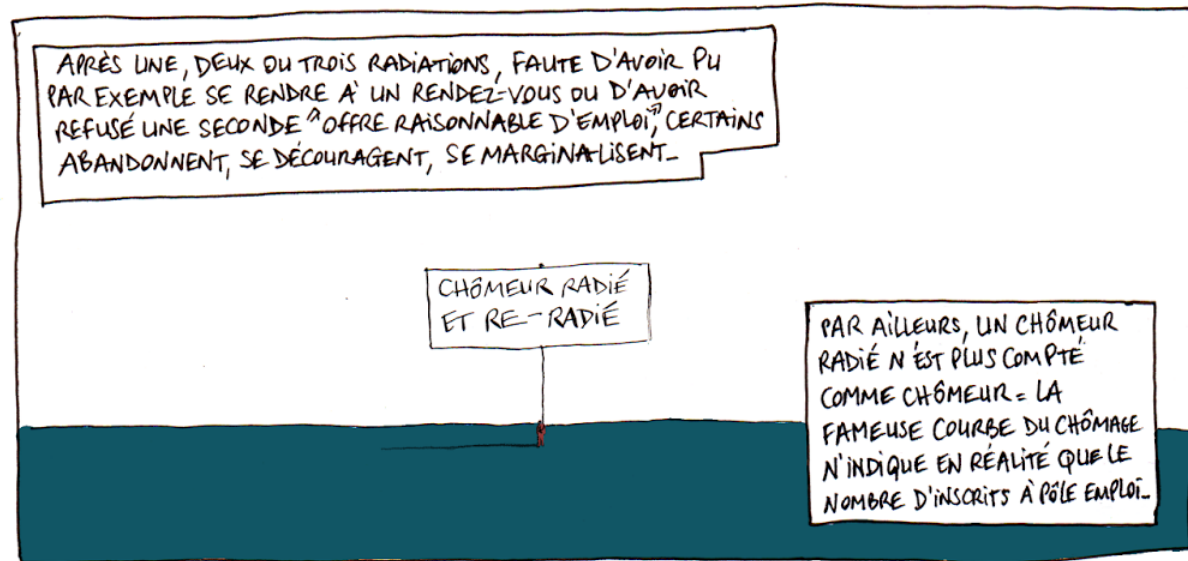 APRÈS UNE, DEUX OU TROIS RADIATIONS, FAUTE D'AVOIR PU
PAR EXEMPLE SE RENDRE À UN RENDEZ-VOUS OU D'AVOIR
REFUSÉ UNE SECONDE "OFFRE RAISONNABLE D'EMPLOI", CERTAINS
ABANDONNENT, SE DÉCOURAGENT, SE MARGINALISENT_
CHÔMEUR RADIÉ
ET RE-RADIÉ
PAR AILLEURS, UN CHÔMEUR
RADIÉ N'EST PLUS COMPTÉ
COMME CHÔMEUR = LA
FAMEUSE COURBE DU CHÔMAGE
N'INDIQUE EN RÉALITÉ QUE LE
NOMBRE D'INSCRITS À PÔLE EMPLOI_